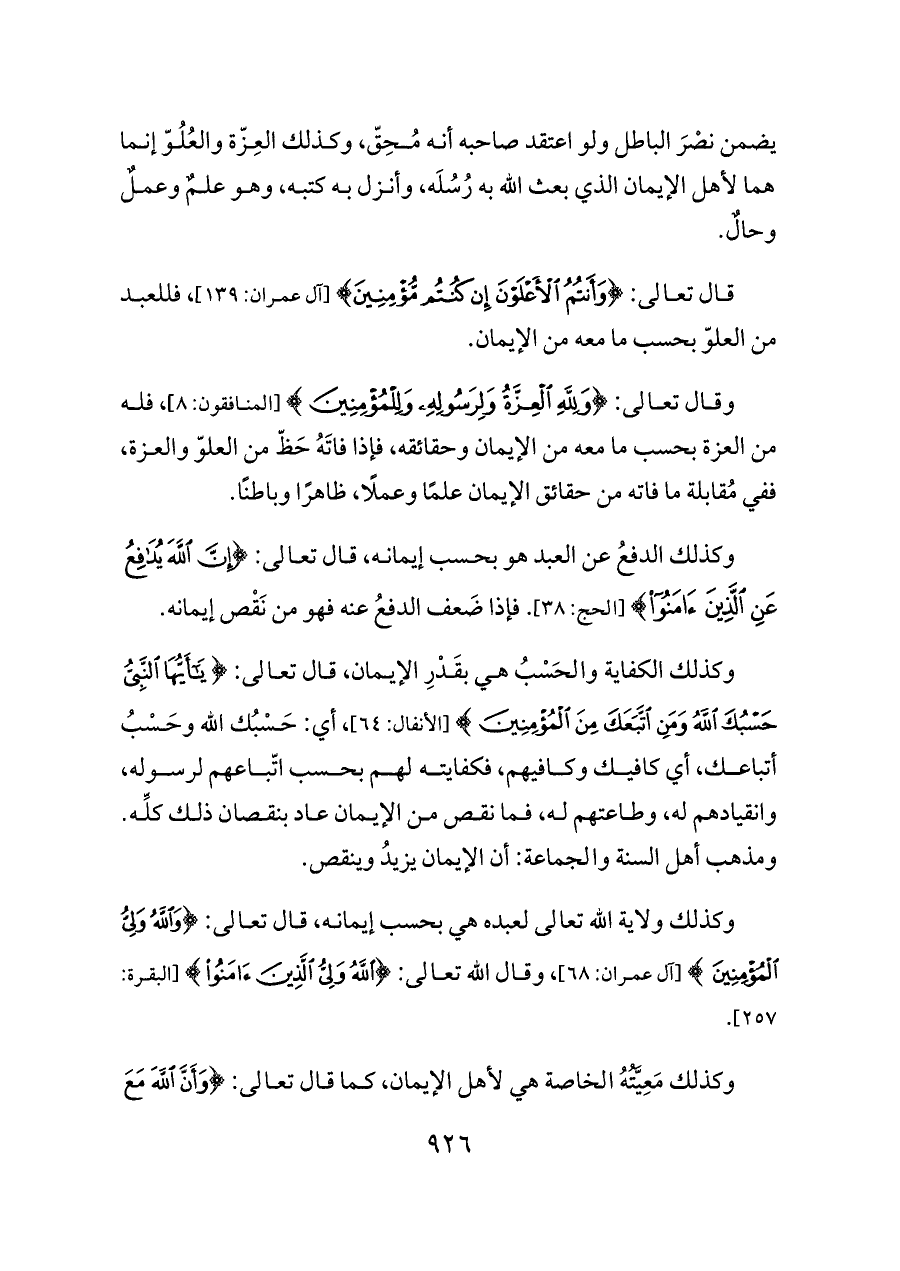 يضمن نصْرَ الباطل ولو اعتقد صاحبه أنه مُحِقّ، وكذلك العِزّة والعُلُوّ إنما
هما لأهل الإيمان الذي بعث الله به رُسُلَه، وأنزل به كتبه، وهو علمٌ وعملٌ
وحالٌ.
قال تعالى: ﴿وَأَنتُمُ ٱلْأَعْلَوْنَ إِن كُنتُم مُّؤْمِنِينَ﴾ [آل عمران: ١٣٩]، فللعبد
من العلوّ بحسب ما معه من الإيمان.
وقال تعالى: ﴿وَلِلَّهِ ٱلْعِزَّةُ وَلِرَسُولِهِۦ وَلِلْمُؤْمِنِينَ﴾ [المنافقون: ٨]، فله
من العزة بحسب ما معه من الإيمان وحقائقه، فإذا فاتَهُ حَظّ من العلوّ والعزة،
ففي مُقابلة ما فاته من حقائق الإيمان علمًا وعملًا، ظاهرًا وباطنًا.
وكذلك الدفعُ عن العبد هو بحسب إيمانه، قال تعالى: ﴿إِنَّ ٱللَّهَ يُدَٰفِعُ
عَنِ ٱلَّذِينَ ءَامَنُوٓا۟﴾ [الحج: ٣٨]. فإذا ضَعف الدفعُ عنه فهو من نَقْص إيمانه.
وكذلك الكفاية والحَسْبُ هي بقَدْرِ الإيمان، قال تعالى: ﴿يَٰٓأَيُّهَا ٱلنَّبِىُّ
حَسْبُكَ ٱللَّهُ وَمَنِ ٱتَّبَعَكَ مِنَ ٱلْمُؤْمِنِينَ﴾ [الأنفال: ٦٤]، أي: حَسْبُك الله وحَسْبُ
أتباعك، أي كافيك وكافيهم، فكفايته لهم بحسب اتّباعهم لرسوله،
وانقيادهم له، وطاعتهم له، فما نقص من الإيمان عاد بنقصان ذلك كلِّه.
ومذهب أهل السنة والجماعة: أن الإيمان يزيدُ وينقص.
وكذلك ولاية الله تعالى لعبده هي بحسب إيمانه، قال تعالى: ﴿وَٱللَّهُ وَلِىُّ
ٱلْمُؤْمِنِينَ﴾ [آل عمران: ٦٨]، وقال الله تعالى: ﴿ٱللَّهُ وَلِىُّ ٱلَّذِينَ ءَامَنُوا۟﴾ [البقرة:
٢٥٧].
وكذلك مَعِيَّتُهُ الخاصة هي لأهل الإيمان، كما قال تعالى: ﴿وَأَنَّ ٱللَّهَ مَعَ
٩٢٦